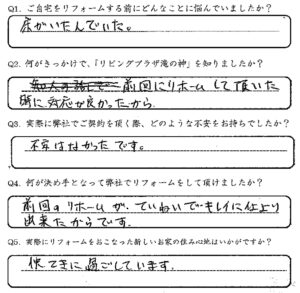 Q1. ご自宅をリフォームする前にどんなことに悩んでいましたか？
床がいたんでいた。
Q2. 何がきっかけで、「リビングプラザ滝の神」を知りましたか？
前回にリホームして頂いた
時に対応が良かったから
Q3. 実際に弊社でご契約を頂く際、どのような不安をお持ちでしたか？
不安はなかったです。
Q4. 何が決め手となって弊社でリフォームをして頂けましたか？
前回のリホームが、ていねいでキレイに仕上り
出来たからです.
Q5. 実際にリフォームをおこなった新しいお家の住み心地はいかがですか？
快てきに過ごしています.